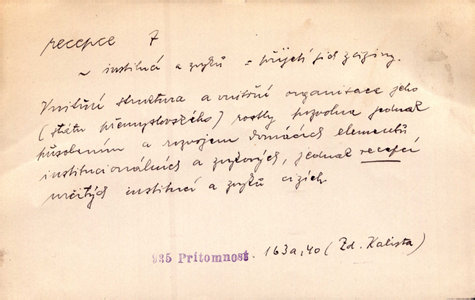 recepce 7
~ institucí a zvyků = přijetí od ciziny.
Vnitřní struktura a vnitřní organisace jeho
(státu přemyslovského) rostly pozvolna jednak
působením a rozvojem domácích elementů
institucionálních a zvykových, jednak recepcí
určitých institucí a zvyků cizích
935 Přítomnost. 163a,40 (Zd. Kalista)